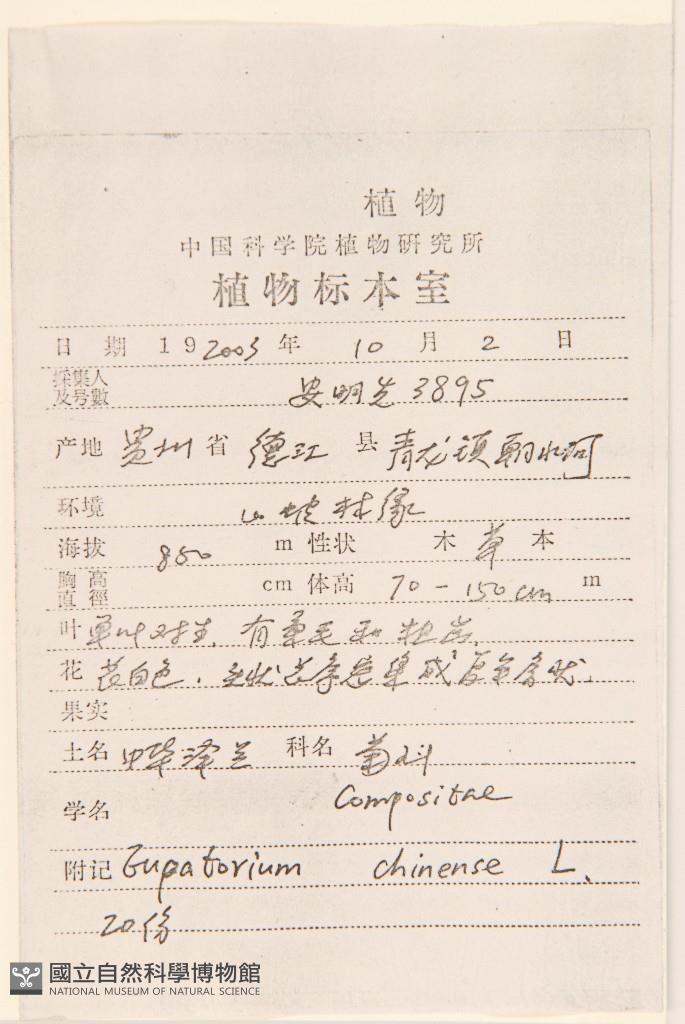 植物
中国科学院植物研究所
植物标本室
日 期 19 2003 年 10 月 2 日
採集人及号數 安明先 3895
产地 贵州 省 德江 县 青龙镇 水河
环境 山坡林缘
海拔 850 m 性状 木 草 本
胸高直徑 cm 体高 70-150cm m
叶 单叶对生, 有柔毛和粗齿,
花 花白色, 头状花序密集成复伞房状.
果实
土名 中华泽兰 科名 菊科
Compositae
学名
附记 Eupatorium chinense L.
20份
國立自然科學博物館
NATIONAL MUSEUM OF NATURAL SCIENCE